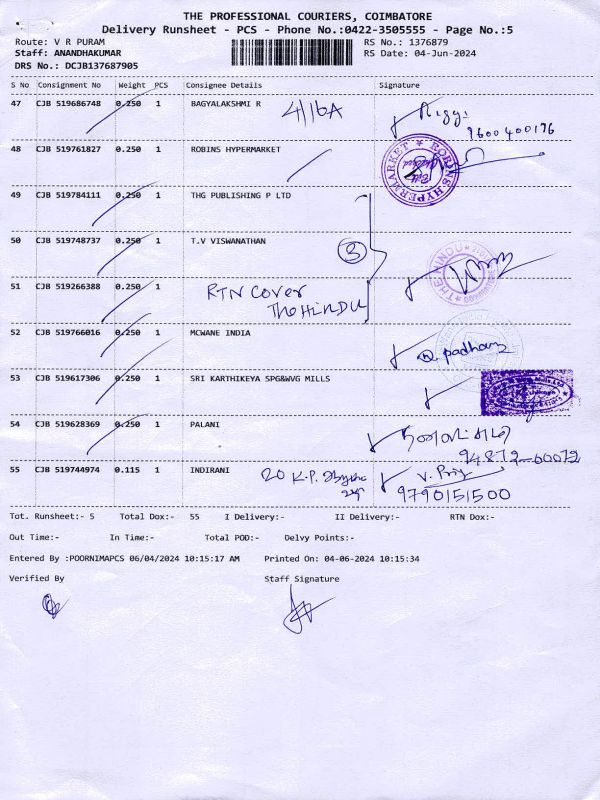 THE PROFESSIONAL COURIERS, COIMBATORE
Delivery Runsheet - PCS - Phone No.:0422-3505555 - Page No.:5
Route: V R PURAM RS No.: 1376879
Staff: ANANDHAKUMAR RS Date: 04-Jun-2024
DRS No.: DCJB137687905
S No Consignment No Weight PCS Consignee Details Signature
47 CJB 519686748 0.250 1 BAGYALAKSHMI R 4/16A
9600400176
48 CJB 519761827 0.250 1 ROBINS HYPERMARKET ROBINS HYPERMARKET
49 CJB 519784111 0.250 1 THG PUBLISHING P LTD
50 CJB 519748737 0.250 1 T.V VISWANATHAN 3 THE HINDU
51 CJB 519266388 0.250 1 RTN COVER
THE HINDU
52 CJB 519766016 0.250 1 MCWANE INDIA
53 CJB 519617306 0.250 1 SRI KARTHIKEYA SPG&WVG MILLS
54 CJB 519628369 0.250 1 PALANI
94872-00072
55 CJB 519744974 0.115 1 INDIRANI 20 K.P. V. Priy
9790151500
Tot. Runsheet:- 5 Total Dox:- 55 I Delivery:- II Delivery:- RTN Dox:-
Out Time:- In Time:- Total POD:- Delvy Points:-
Entered By :POORNIMAPCS 06/04/2024 10:15:17 AM Printed On: 04-06-2024 10:15:34
Verified By Staff Signature